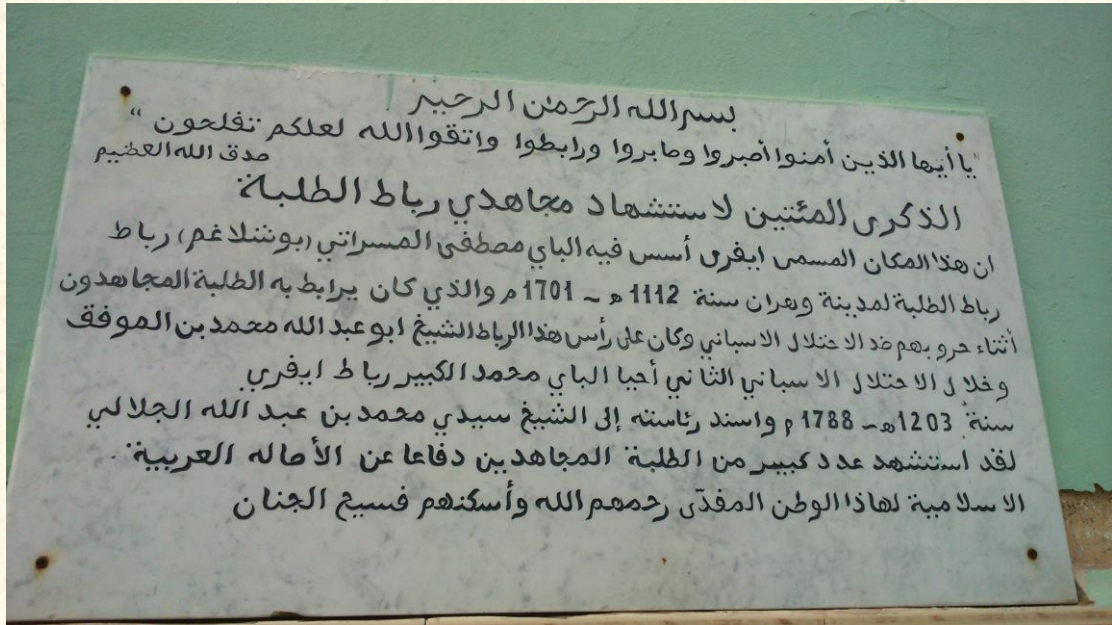 بسم الله الرحمن الرحيم
"يا أيها الذين أمنوا أصبروا وصابروا ورابطوا واتقوا الله لعلكم تفلحون"
صدق الله العظيم
الذكرى المئتين لاستشهاد مجاهدي رباط الطلبة
ان هذا المكان المسمى ايفري أسس فيه الباي مصطفى المسراتي (بوشلاغم) رباط
رباط الطلبة لمدينة وهران سنة 1112 ه ~ 1701 م والذي كان يرابط به الطلبة المجاهدون
أثناء حروبهم ضد الاحتلال الاسباني وكان على رأس هذا الرباط الشيخ ابو عبد الله محمد بن الموفق
وخلال الاحتلال الاسباني الثاني أحيا الباي محمد الكبير رباط ايفري
سنة 1203ه~ 1788 م واسند رئاسته إلى الشيخ سيدي محمد بن عبد الله الجلالي
لقد استشهد عدد كبير من الطلبة المجاهدين دفاعا عن الأصاله العربية
الاسلامية لهاذا الوطن المفدى رحمهم الله وأسكنهم فسيح الجنان